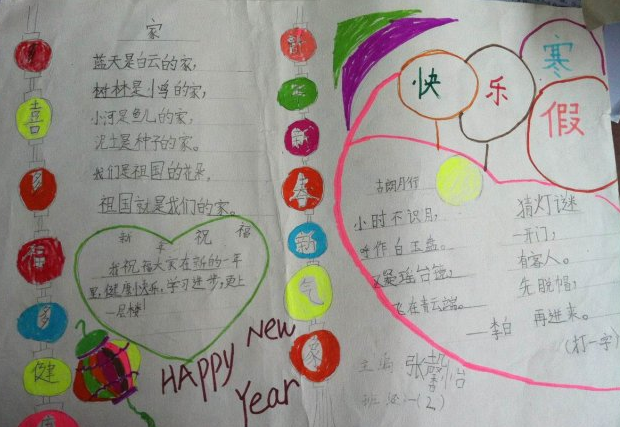 家
蓝天是白云的家,
树林是小鸟的家,
小河是鱼儿的家,
泥土是种子的家。
我们是祖国的花朵,
祖国就是我们的家。
新年祝福
我祝福大家在新的一年
里,健康快乐,学习进步,更上
一层楼!
HAPPY New
Year
喜
福
多
健
新
春
新
气
象
快乐
寒
假
古朗月行
小时不识月,
呼作白玉盘。
又疑瑶台镜,
飞在青云端。
——李白
猜灯谜
一开门,
有客人。
先脱帽,
再进来。
(打一字)
主编
班级一(2)